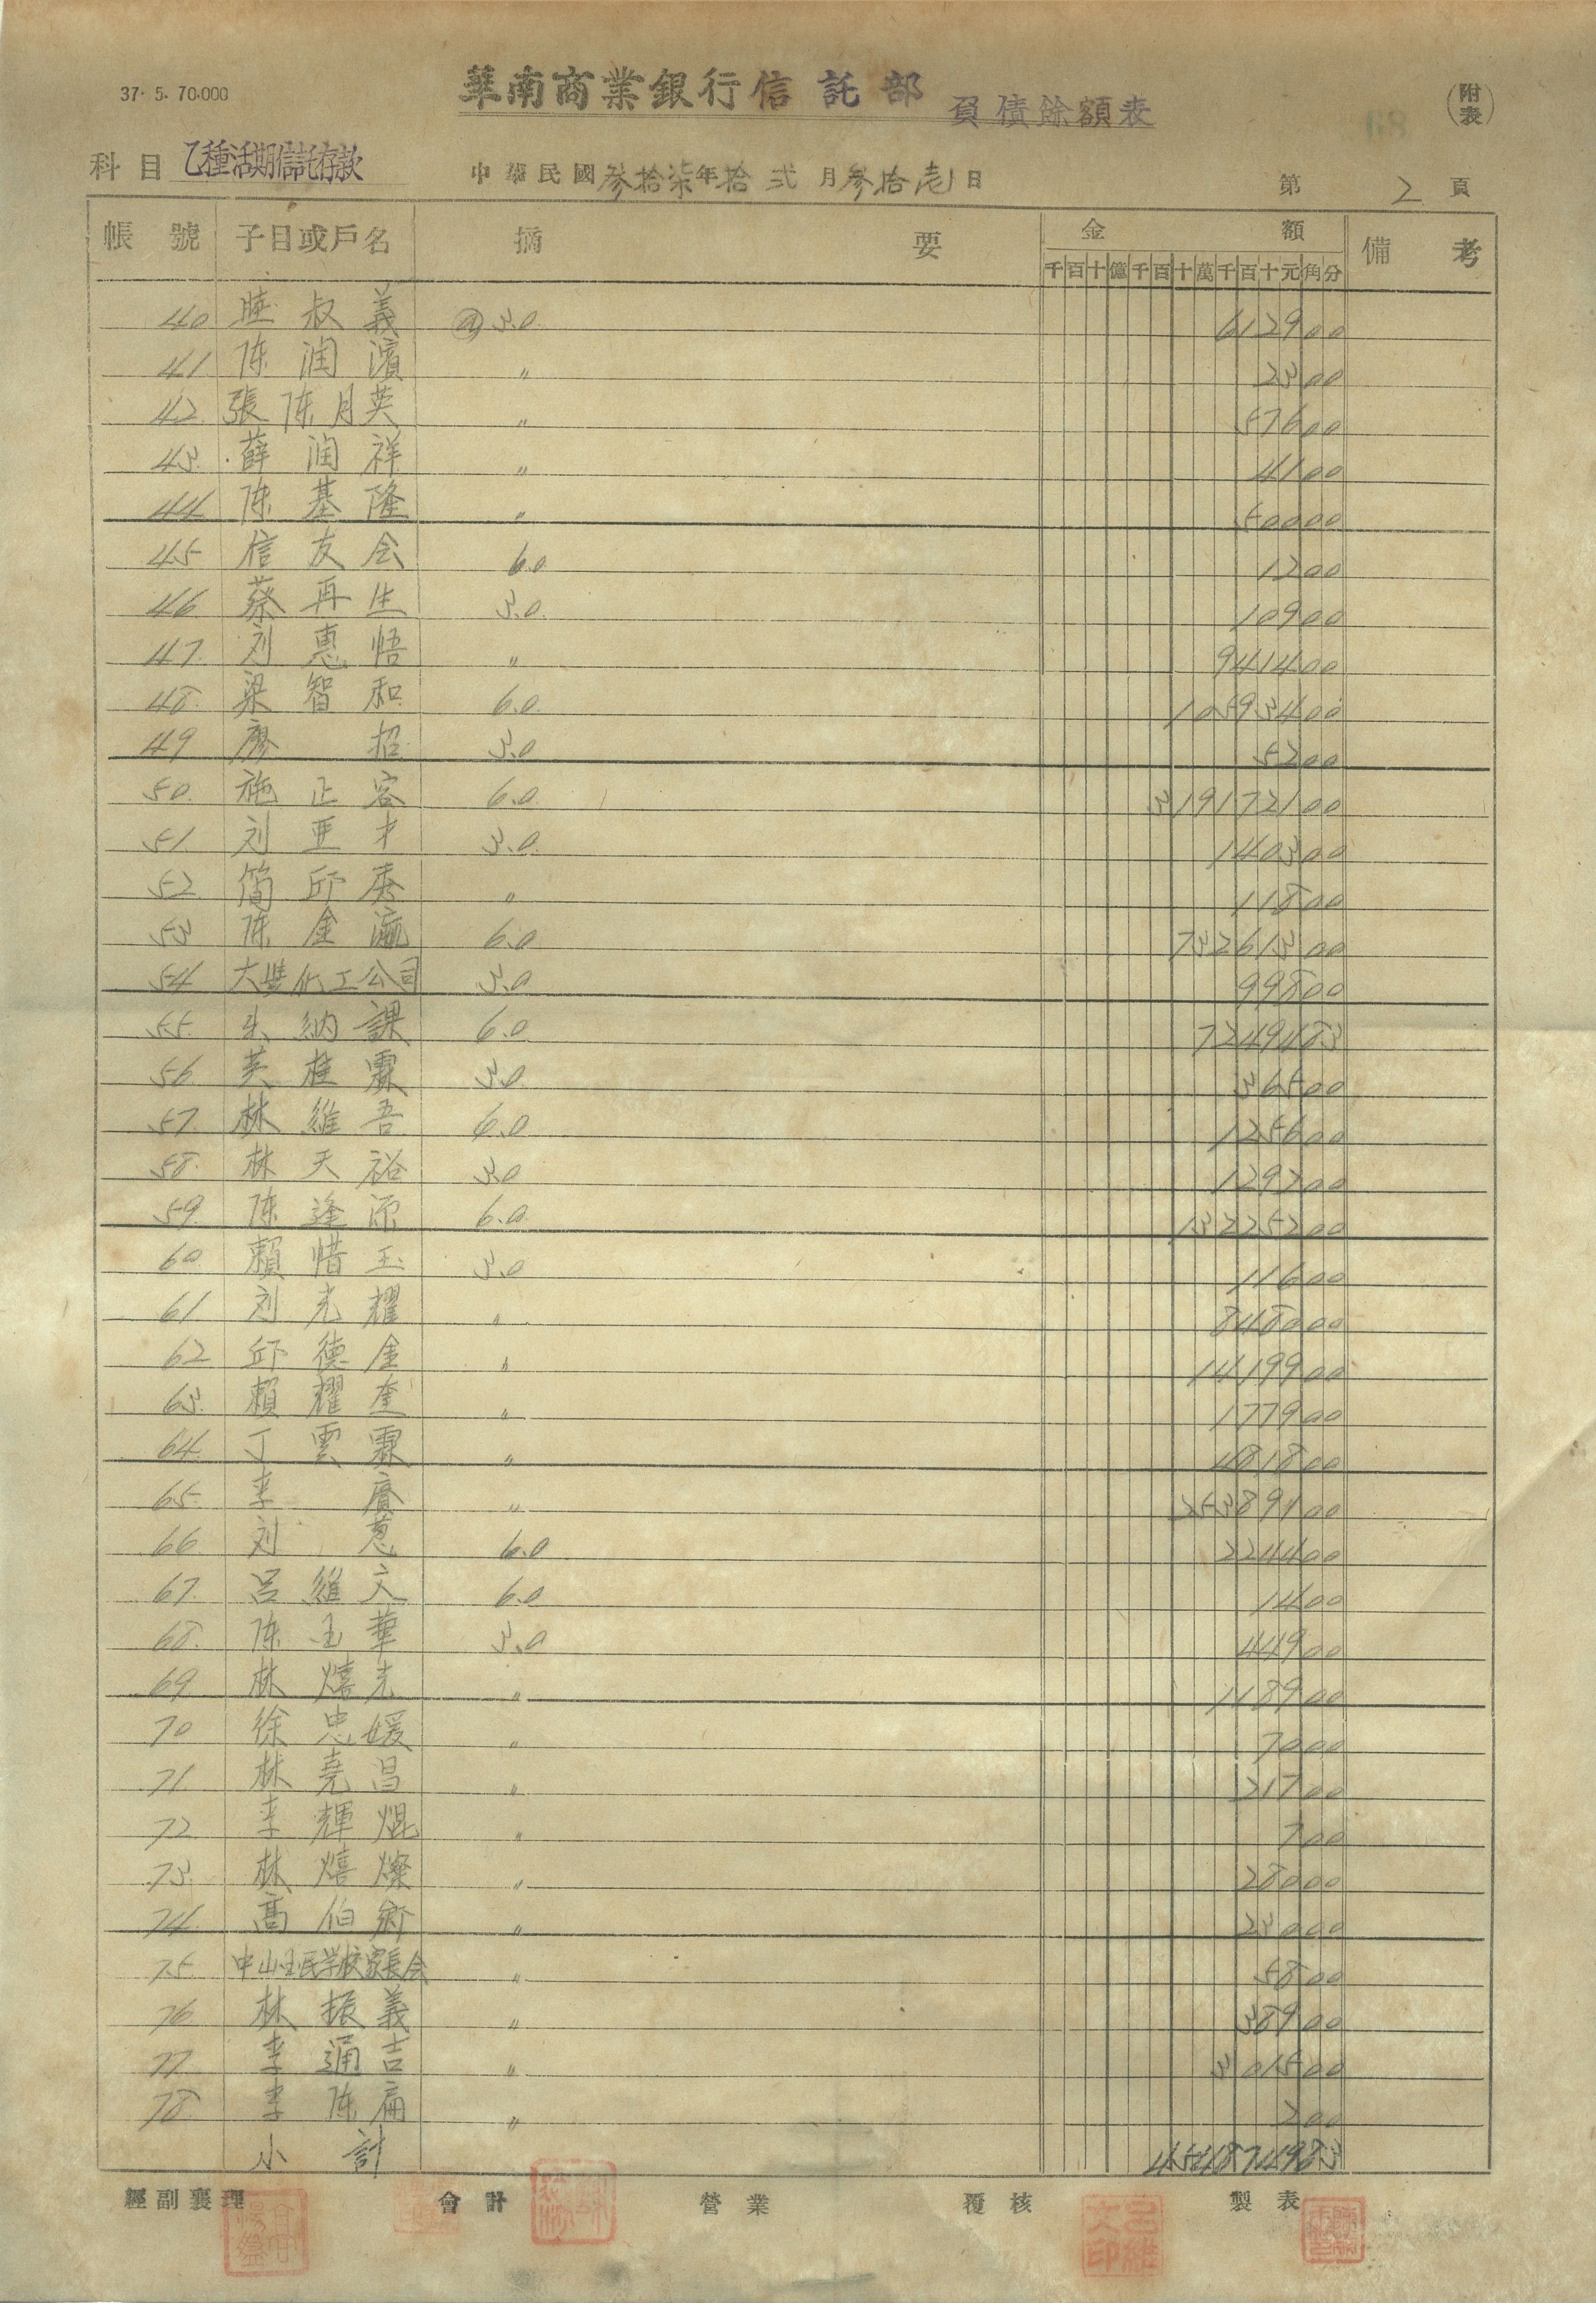 37. 5. 70.000
華南商業銀行信託部 負債餘額表 (附表)
68
科目 乙種活期信託存款 中華民國參拾柒年拾弍月參拾壱日 第 2 頁
帳號 子目或戶名 摘要 金額 備考
千百十億千百十萬千百十元角分
40 陸叔義 @3.0 612900
41 陈潤濱 〃 2300
42 張陈月英 〃 57600
43 薛潤祥 〃 4100
44 陈基隆 〃 50000
45 信友会 6.0 1200
46 蔡再生 3.0 10900
47 刘惠悟 〃 941400
48 梁智和 6.0 10593400
49 廖招 3.0 5200
50 施正容 6.0 319172100
51 刘亜才 3.0 140300
52 簡邱秀 〃 11800
53 陈金瀛 6.0 73261300
54 大豊化工公司 3.0 99800
55 出納課 6.0 7249483
56 英桂霖 3.0 36500
57 林維吾 6.0 125600
58 林天裕 3.0 129700
59 陈逢源 6.0 13225200
60 賴惜玉 3.0 11600
61 刘光耀 〃 848000
62 邱德金 〃 1419900
63 賴耀奎 〃 177900
64 丁雲霖 〃 481800
65 李 〃 25389100
66 刘 6.0 224400
67 呂維文 6.0 1400
68 陈玉華 3.0 44900
69 林熺光 〃 118900
70 徐忠媛 〃 7000
71 林堯昌 〃 21700
72 李輝焜 〃 700
73 林熺燦 〃 28000
74 高伯 〃 23000
75 中山国民学校家長会 〃 5800
76 林振義 〃 38900
77 李通吉 〃 301500
78 李陈扁 〃 200
小計 454874983
經副襄理 會計 營業 覆核 製表
呂維文印